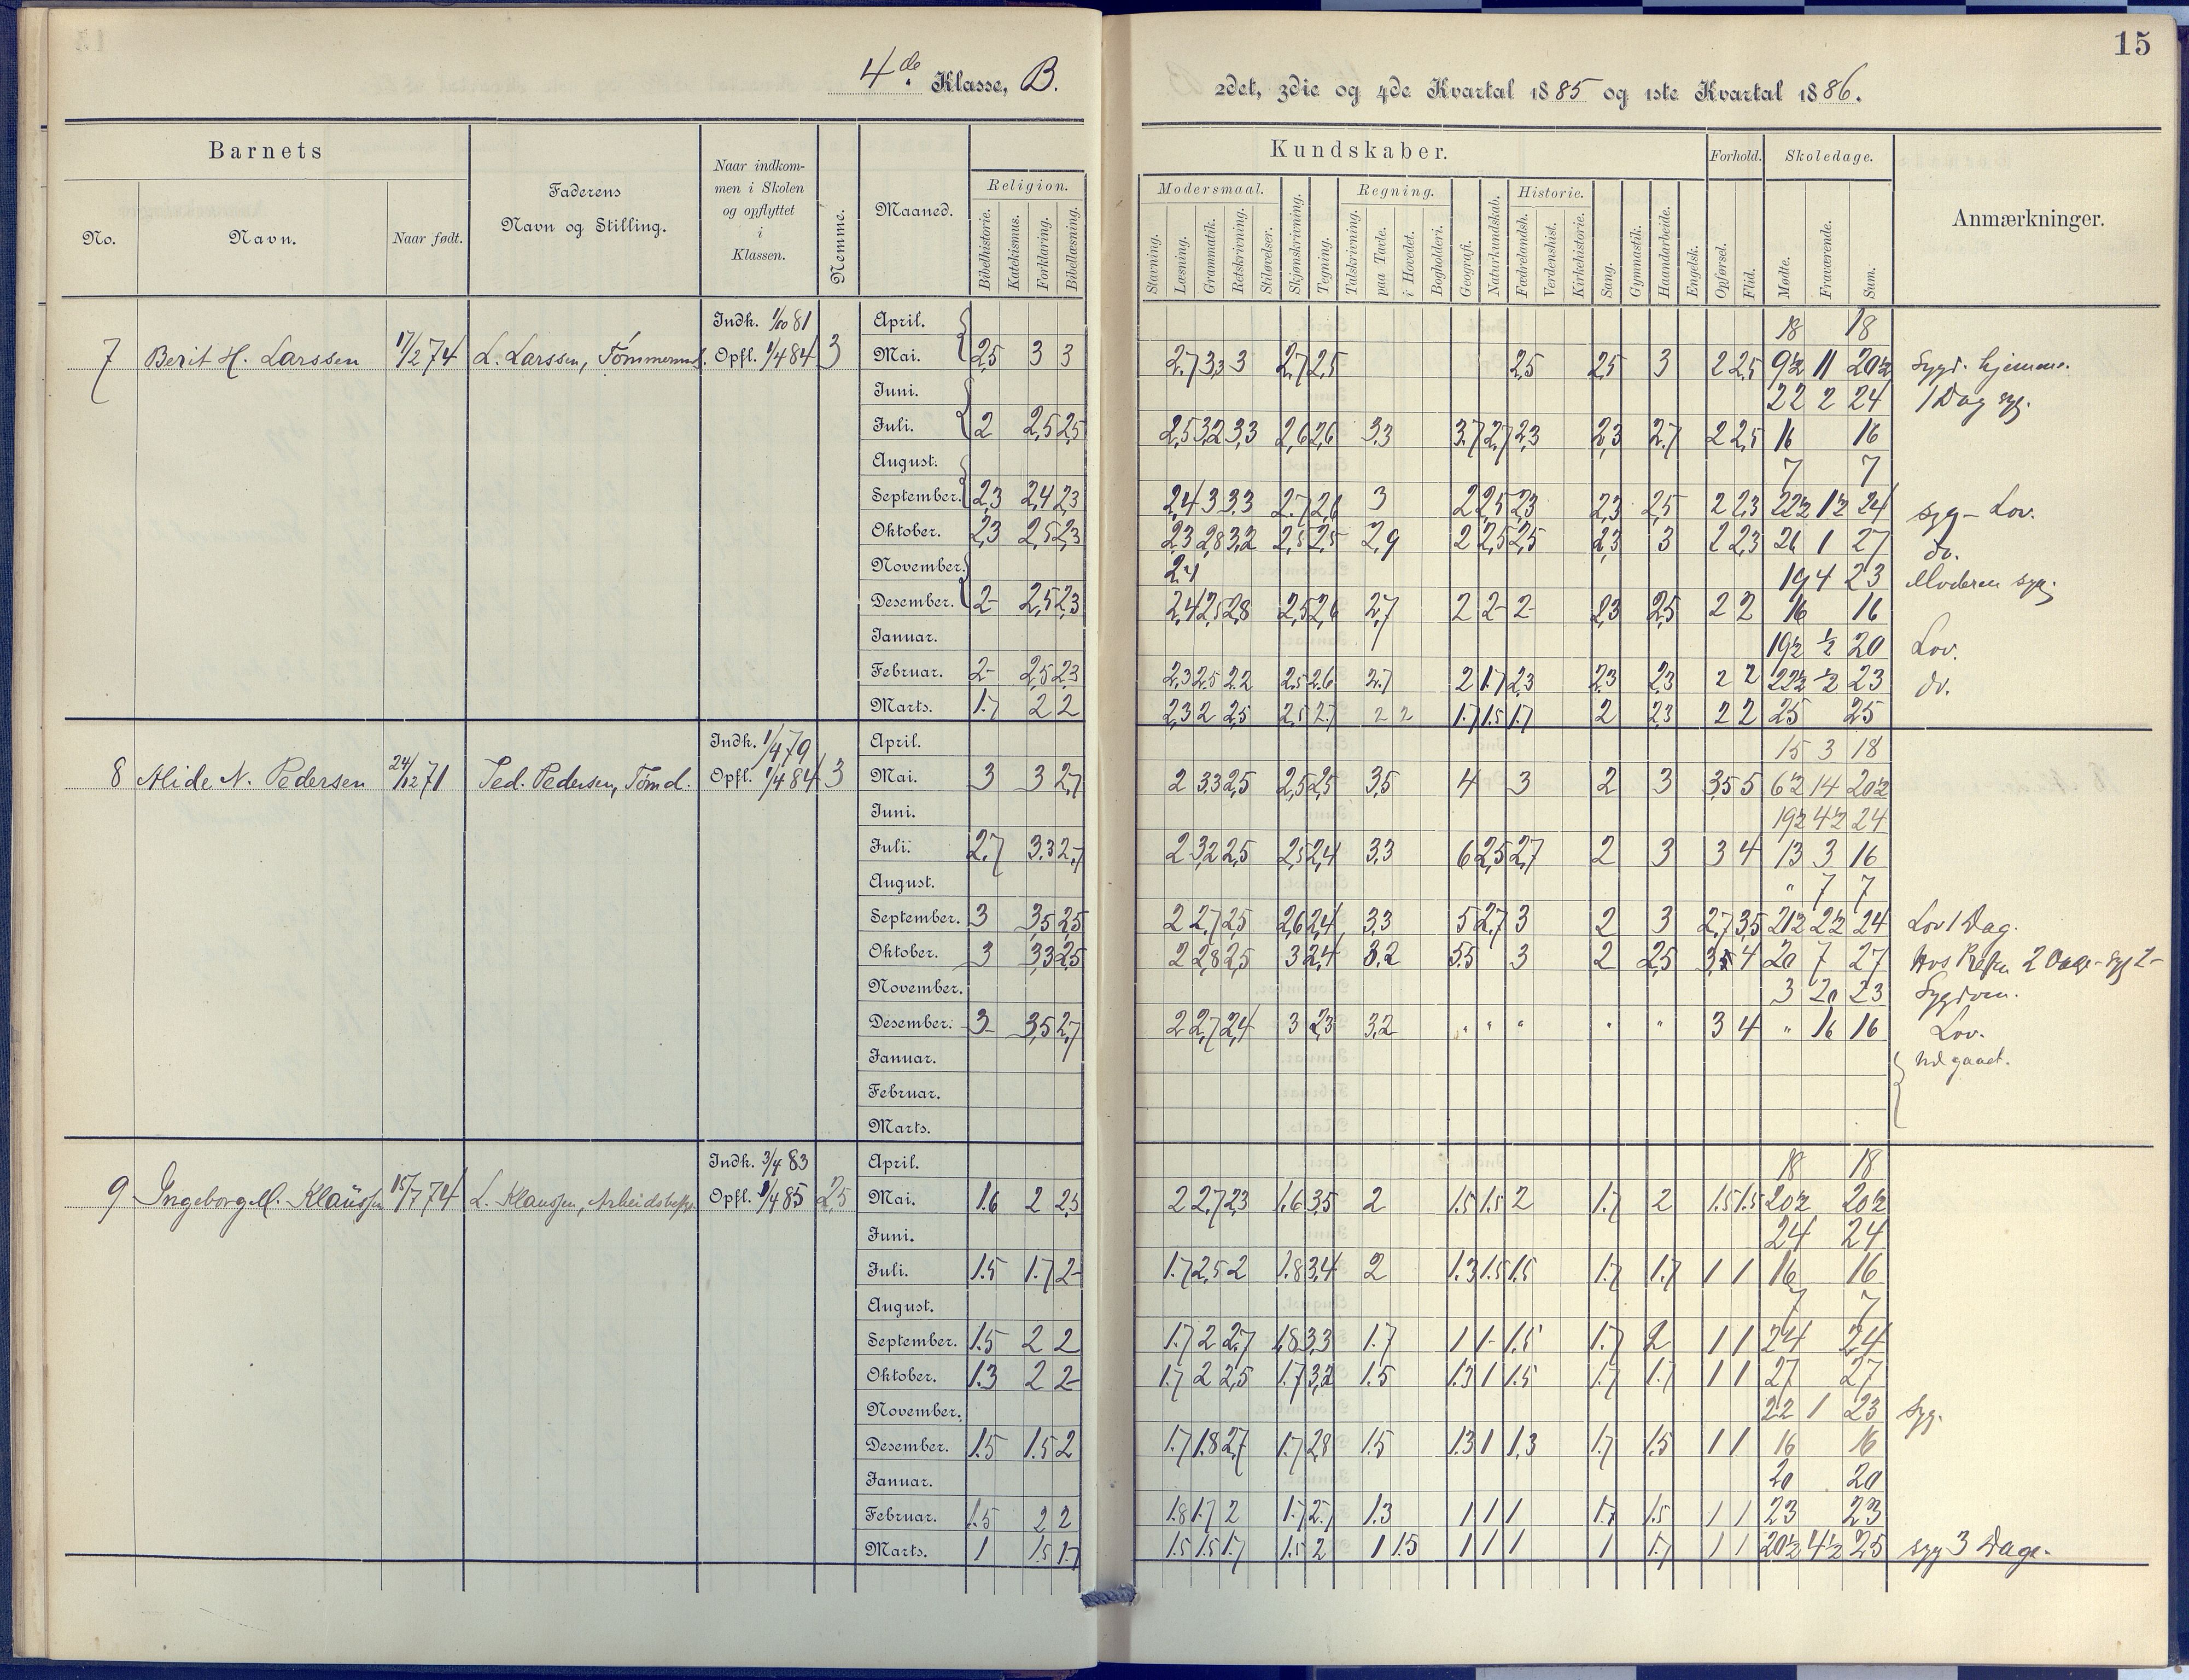 15
4de Klasse, B.
2det, 3die og 4de Kvartal 1885 og 1ste Kvartal 1886.
Barnets
No.
Navn.
Naar født.
Faderens
Navn og Stilling.
Naar indkom-
men i Skolen
og opflyttet
i
Klassen.
Nemme.
Maaned.
Kundskaber.
Religion.
Bibelhistorie. Katekismus. Forklaring. Bibellæsning.
Modersmaal.
Stavning. Læsning. Grammatik. Retskrivning. Stiløvelser.
Skjønskrivning. Tegning.
Regning.
Talskrivning. paa Tavle. i Hovedet. Bogholderi.
Geografi. Naturkundskab.
Historie.
Fædrelandsh. Verdenshist. Kirkehistorie.
Sang. Gymnastik. Haandarbeide. Engelsk.
Forhold.
Opførsel. Flid.
Skoledage.
Mødte. Fraværende. Sum.
Anmærkninger.
Indk. 1/10 81 April. 18 18
7 Berit H. Larssen 17/2 74 L. Larssen, Opfl. 1/4 84 3 Mai. 2,5 3 3 2.7 3,3 3 2.7 2,5 2,5 2,5 3 2 2,5 9 1/2 11 20 1/2 Sygd. hjemme.
Juni. 22 2 24 1 Dag syg.
Juli. 2 2,5 2,5 2,5 3,2 3,3 2,6 2,6 3,3 3.7 2.7 2,3 2,3 2.7 2 2,5 16 16
August. 7 7
September. 2,3 2,4 2,3 2,4 3 3.3 2.7 2,6 3 2 2,5 2,3 2,3 2,5 2 2,3 22 1/2 1 1/2 24 syg - Lov.
Oktober. 2,3 2,5 2,3 2,3 2,8 3,2 2,5 2,5 2,9 2 2,5 2,5 2,3 3 2 2,3 26 1 27 do.
November. 2,4 19 4 23 Moderen syg.
Desember. 2 2,5 2,3 2,4 2,5 2,8 2,5 2,6 2,7 2 2 2 2,3 2,5 2 2 16 16
Januar. 19 1/2 1/2 20 Lov.
Februar. 2 2,5 2,3 2,3 2,5 2.2 2,5 2.6 2.7 2 1.7 2,3 2,3 2,3 2 2 22 1/2 1/2 23 do.
Marts. 1.7 2 2 2,3 2 2,5 2,5 2.7 2 2 1.7 1.5 1.7 2 2,3 2 2 25 25
Indk. 1/4 79 April. 15 3 18
8 Alide N. Pedersen 24/12 71 Ped. Pedersen, Tømd. Opfl. 1/4 84 3 Mai. 3 3 2,7 2 3.3 2,5 2,5 2,5 3,5 4 3 2 3 3,5 5 6 1/2 14 20 1/2
Juni. 19 1/2 4 1/2 24
Juli. 2.7 3.3 2,7 2 3,2 2,5 2,5 2,4 3,3 6 2,5 2,7 2 3 3 4 13 3 16
August. " 7 7
September. 3 3,5 2,5 2 2,7 2,5 2,6 2,4 3,3 5 2,7 3 2 3 2,7 3,5 21 1/2 2 1/2 24 Lov 1 Dag.
Oktober. 3 3,3 2,5 2 2,8 2,5 3 2,4 3.2 5.5 3 2 2,5 4 20 7 27 2 Dage - syg 2 -
November. 3 20 23 Sygdom.
Desember. 3 3,5 2,7 2 2,7 2,4 3 2,3 3,2 " " " " " 3 4 " 16 16 Lov.
Januar. Udgaaet.
Februar.
Marts.
Indk. 3/4 83 April. 18 18
9 Ingeborg M. Klaussen 15/7 74 L. Klaussen, Opfl. 1/4 85 2,5 Mai. 1.6 2 2,3 2 2,7 2,3 1.6 3,5 2 1.5 1.5 2 1.7 2 1.5 1.5 20 1/2 20 1/2
Juni. 24 24
Juli. 1.5 1.7 2 1.7 2,5 2 1.8 3,4 2 1.3 1.5 1.5 1.7 1.7 1 1 16 16
August. 7 7
September. 1.5 2 2 1.7 2 2.7 1,8 3,3 1.7 1 1 1.5 1.7 2 1 1 24 24
Oktober. 1.3 2 2 1.7 2 2,5 1.7 3,2 1.5 1.3 1 1.5 1.7 1.7 1 1 27 27
November. 22 1 23 Syg.
Desember. 1.5 1.5 2 1.7 1.8 2,7 1.7 2,8 1.5 1.3 1 1,3 1.7 1.5 1 1 16 16
Januar. 20 20
Februar. 1.5 2 2 1.8 1.7 2 1.7 2.7 1.3 1 1 1 1.7 1.5 1 1 23 23
Marts. 1 1.5 1.7 1.5 1.5 1.7 1.5 2 1 1.5 1 1 1 1 1.7 1 1 20 1/2 4 1/2 25 syg 3 Dage.